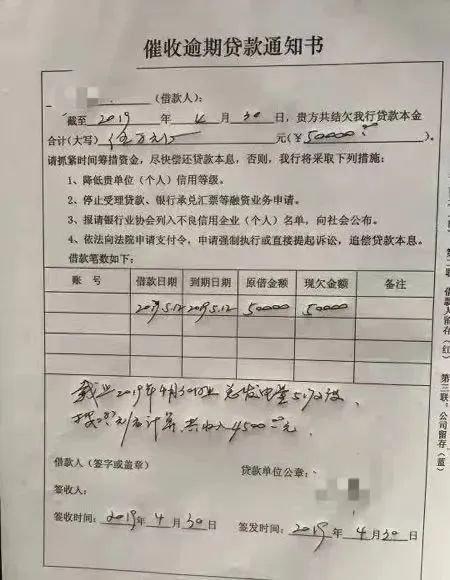 催收逾期贷款通知书
(借款人):
截至 2019 年 4 月 30 日,贵方共结欠我行贷款本金
合计(大写) 伍万元 元(¥ 50000 )。
请抓紧时间筹措资金,尽快偿还贷款本息,否则,我行将采取下列措施:
1、降低贵单位(个人)信用等级。
2、停止受理贷款、银行承兑汇票等融资业务申请。
3、报请银行业协会列入不良信用企业(个人)名单,向社会公布。
4、依法向法院申请支付令,申请强制执行或直接提起诉讼,追偿贷款本息。
借款笔数如下:
账 号 借款日期 到期日期 原借金额 现欠金额 备注
2019.5.12 50000 50000
截止2019年4月30日止 总发电量5192度、
计算 共收入4500元,
借款人(签字或盖章) 贷款单位公章:
签收人:
签收时间: 2019 年 4 月 30 日 签发时间: 2019 年 4 月 30 日
第二联:借款人留存(红)
第三联:公司留存(蓝)